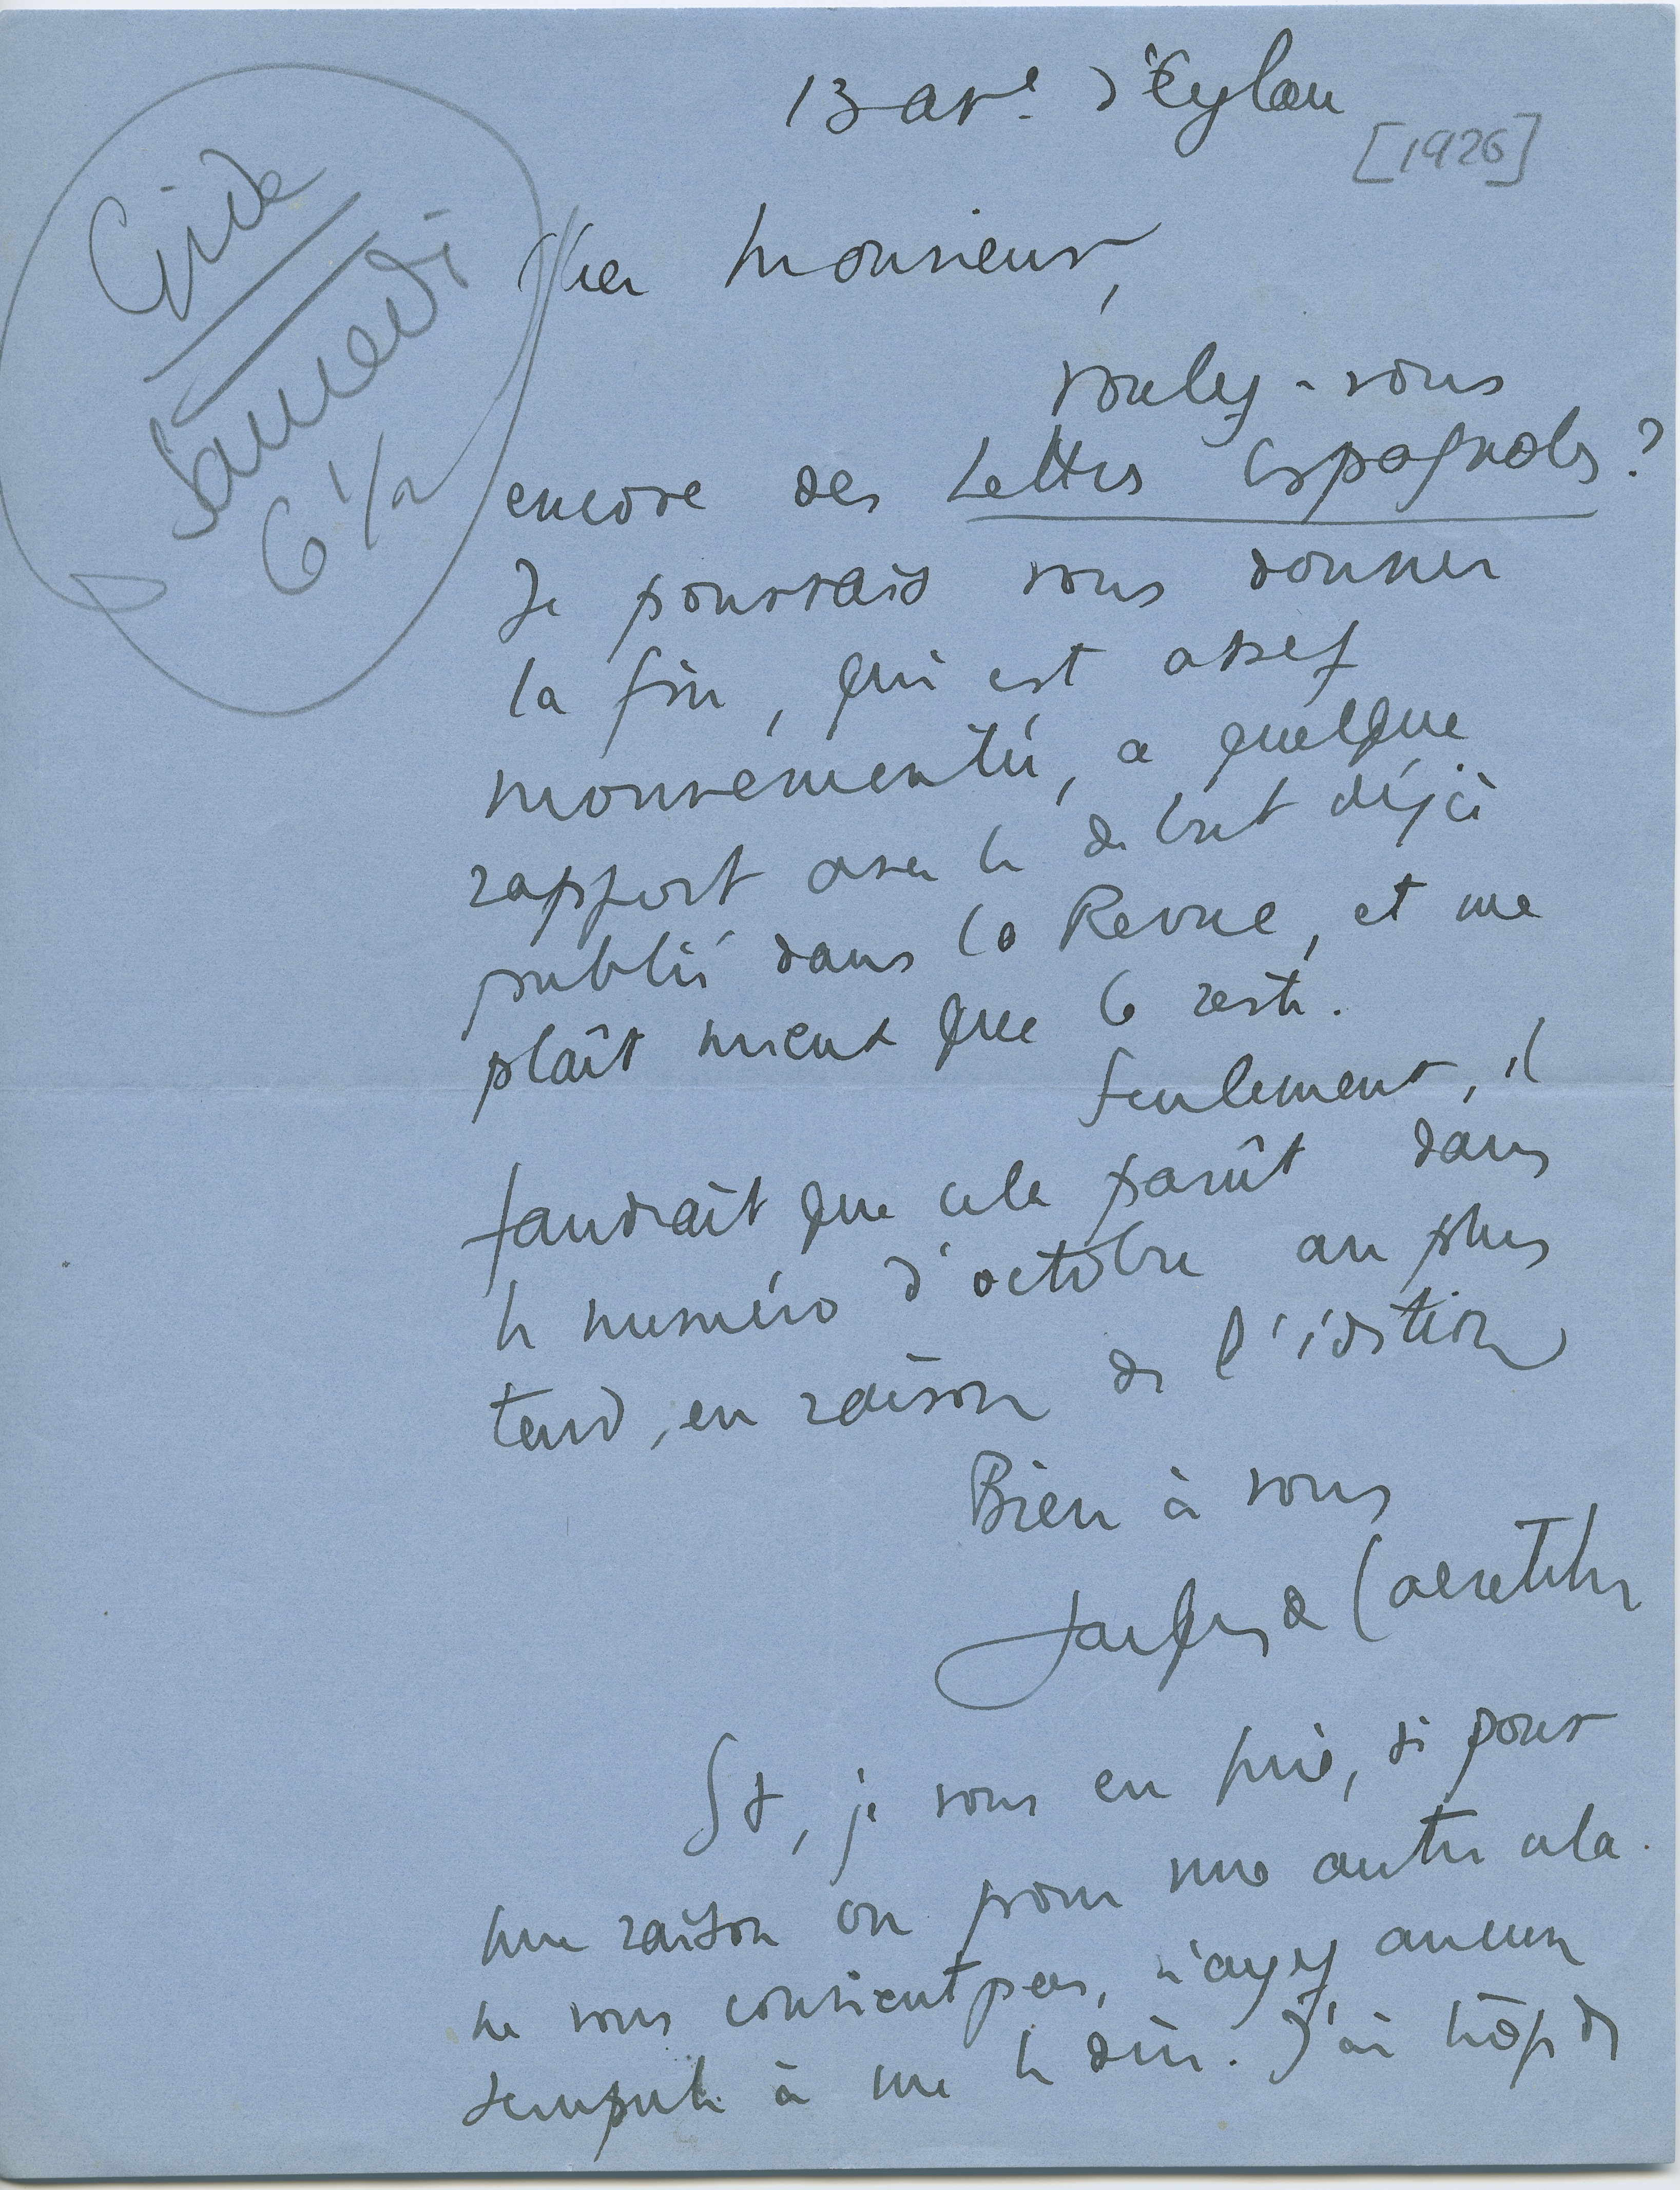 13 ave. d'Eylau
[1926]
Gide
Samedi
6 1/2
Cher Monsieur,
voulez-vous
encore des Lettres espagnoles ?
Je pourrais vous donner
la fin, qui est assez
mouvementée, a quelque
rapport avec le début déjà
publié dans la Revue, et me
plaît mieux que le reste.
Seulement, il
faudrait que cela parût dans
le numéro d'octobre au plus
tard, en raison de l'édition
Bien à vous
Jacques de Lacretelle
Et, je vous en prie, si pour
une raison ou pour une autre cela
ne vous convient pas, n'ayez aucun
scrupule à me le dire. J'ai trop de